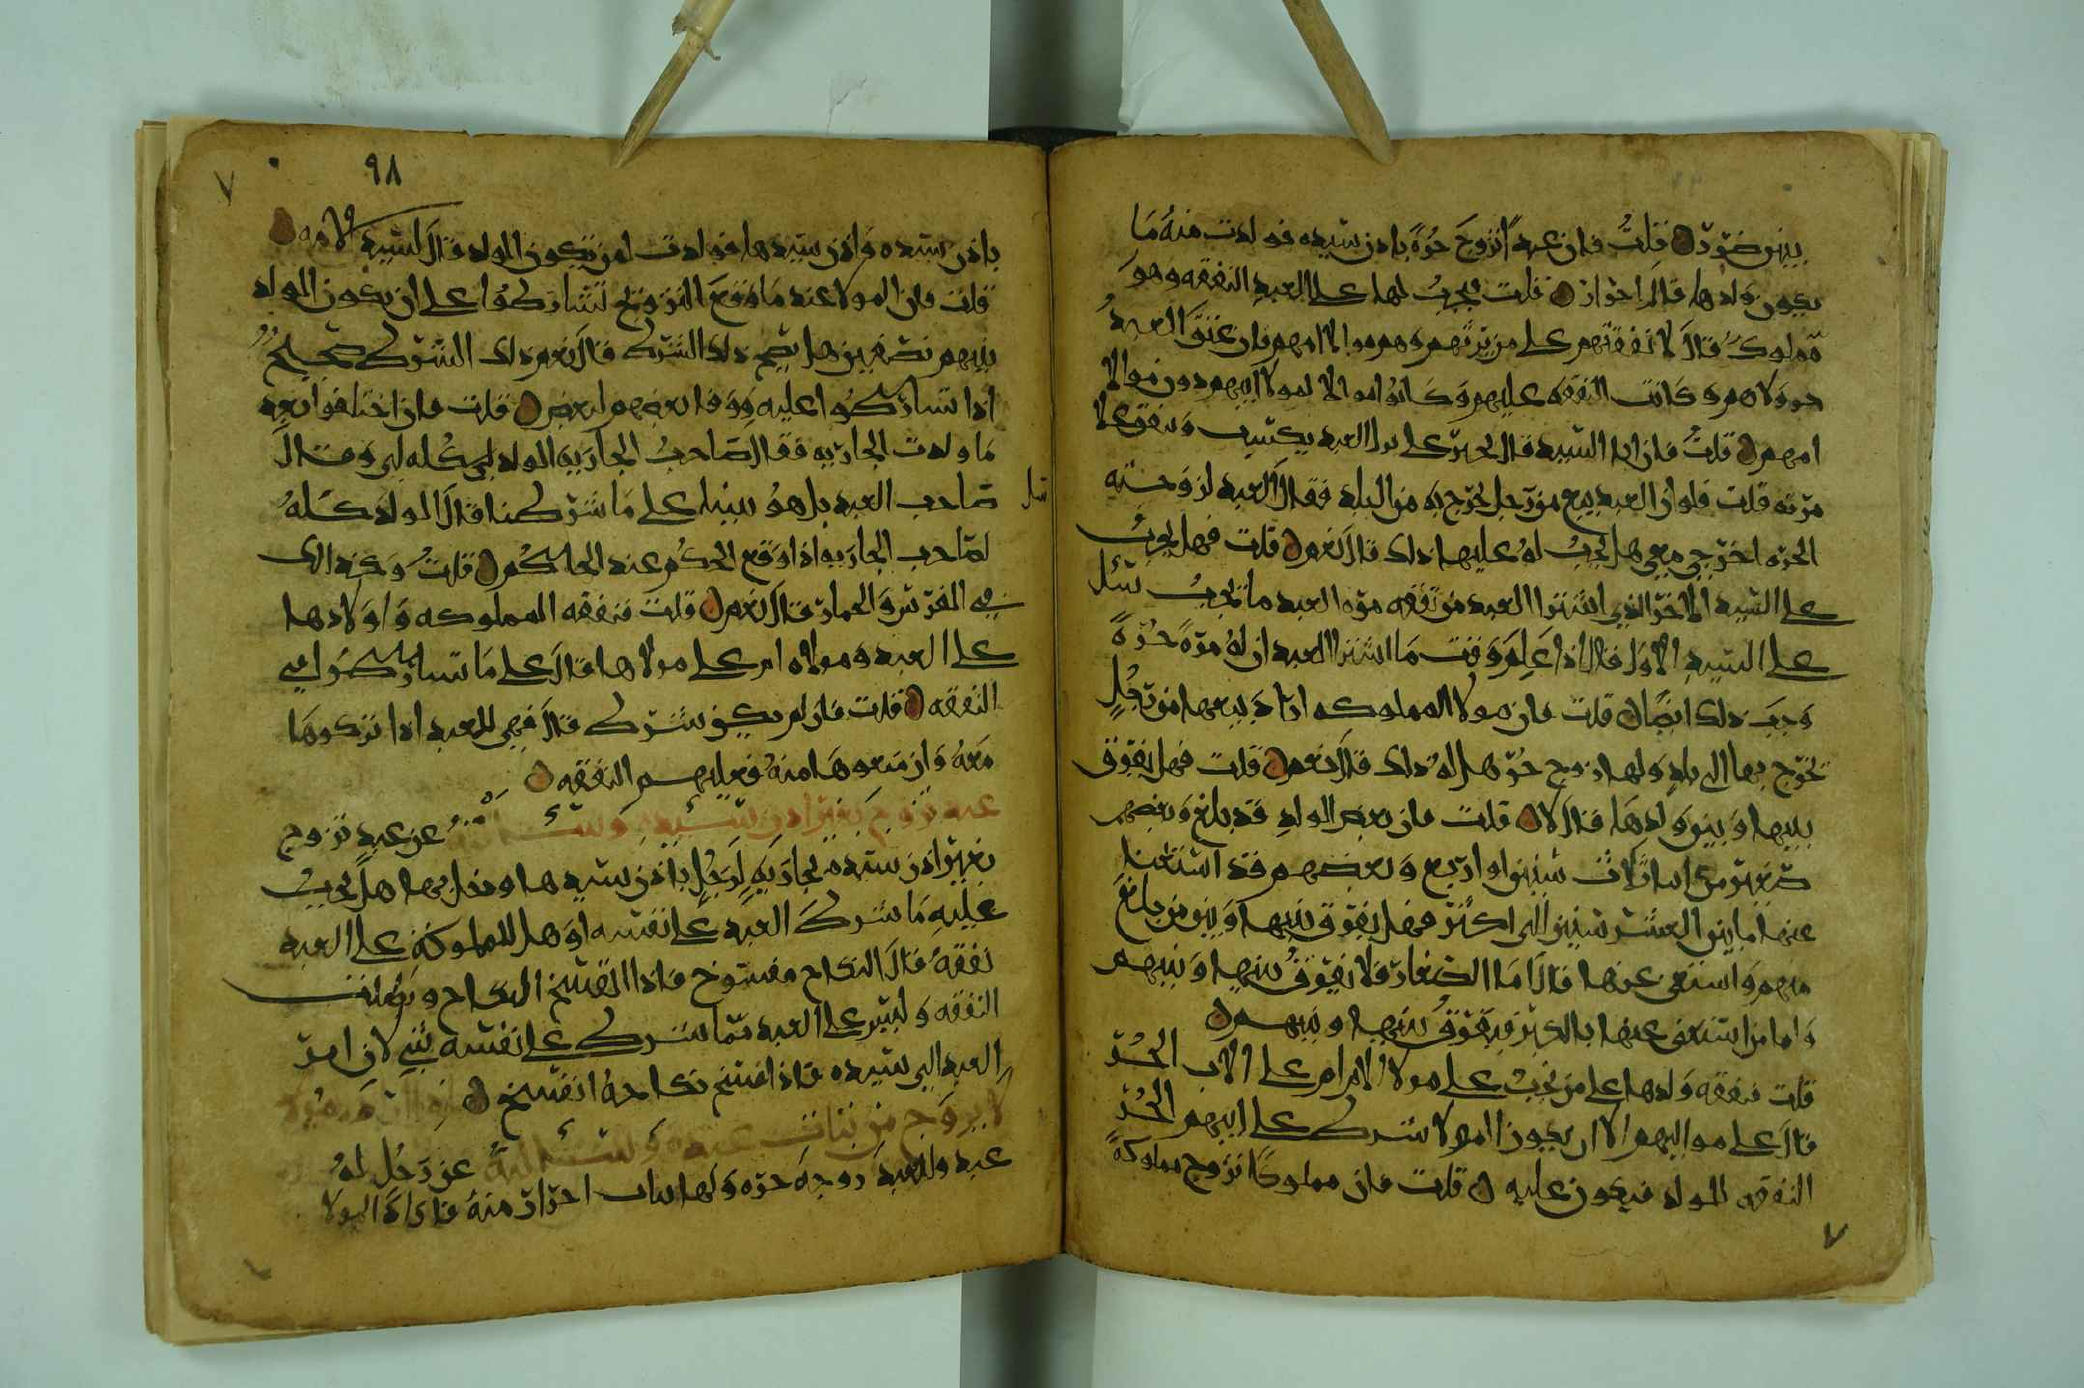 قلت فان عبدا تزوج حرة باذن سيده فولدت منه ما
يكون ولدها قال احرار قلت يجب لها على العبد النفقه وهو
مملوك قال لا نفقتهم على من يرثهم وهم موالا امهم فان عتق العبد
ولاهم وكانت النفقه عليهم وكانوا موالا لمولا ابيهم دون موالا
امهم قلت فان ابا السيد قال يجبر على العبد يكتسب وينفق على
مرته قلت فلو ان العبد بيع من رجل يخرج به من البلد فقال العبد لزوجته
الحره اخرجي معي هل يجب له عليها ذلك قال نعم قلت فهل يجب
على السيد الاخر الذي اشترا العبد من نفقه مره العبد ما يجب
على السيد الاول قال اذا علم وقت ما اشترا العبد ان له مرة حرة
وجب ذلك ايضا قلت فان مولا المملوكه اراد بيعها من رجل
يخرج بها الى بلد ولها زوج حر هل له ذلك قال نعم قلت فهل يفرق
بينها وبين ولدها قال لا قلت فان بعض الولد قد بلغ وبعضهم
صغير من ثلاث سنين او اربع وبعضهم قد استغنا
عنها ما بين العشر سنين الى اكثر فهل يفرق بينها وبين من بلغ
منهم واستغنى عنها قال اما الصغار فلا يفرق بينها وبينهم
واما من استغنى عنها بالكبر فيفرق بينها وبينهم
قلت فنفقه ولدها على من تجب على مولا الام ام على الاب الحر
قال على مواليهم الا ان يكون المولا شرك على ابيهم الحر
النفقه للولد فيكون عليه قلت فان مملوكا تزوج مملوكة
٩٨
باذن سيده واذن سيدها فولدت لمن يكون الولد قال لسيد الامه
قلت فان المولا عند ما وقع التزويج تشاركوا على ان يكون الولد
بينهم نصفين هل يصح ذلك الشرك قال نعم ذلك الشرك صحيح
اذا تشاركوا عليه ووفا بعضهم لبعض قلت فان اختلفوا بعد
ما ولدت الجاريه فقال صاحب الجاريه الولد لي كله لي وقال
صاحب العبد بل هو بيننا على ما شركنا قال الولد كله
لصاحب الجاريه اذا وقع الحكم عند الحاكم قلت وكذلك
في الفرس والحمار قال نعم قلت فنفقه المملوكه واولادها
على العبد ومولاه ام على مولاها قال على ما تشاركوا في
النفقه قلت فان لم يكن شرك قال فهي للعبد اذا تركوها
معه وان منعوها منه فعليهم النفقه
عبد تزوج بغير اذن سيده وسئلته عن عبد تزوج
بغير اذن سيده بجارية لرجل باذن سيدها ودخل بها هل يجب
عليه ما شرك العبد على نفسه او هل للمملوكة على العبد
نفقه قال النكاح مفسوخ فاذا انفسخ النكاح وبطلت
النفقه وليس على العبد مما شرك على نفسه شي لان امر
العبد الى سيده فاذا فسخ نكاحه انفسخ
لا يزوج من بنات عبده وسئلته عن رجل له
عبد وللعبد زوجه حره ولها بنات احرار منه فاراد المولا